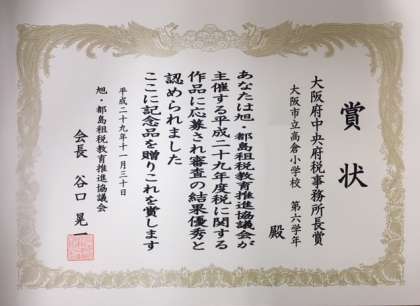 賞状
大阪府中央府税事務所長賞
大阪市立高倉小学校 第六学年
殿
あなたは旭・都島租税教育推進協議会が
主催する平成二十九年度税に関する
作品に応募され審査の結果優秀と
認められました
ここに記念品を贈りこれを賞します
平成二十九年十一月三十日
旭・都島租税教育推進協議会
会長 谷口 晃一